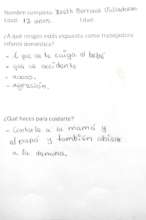 Nombre completo: Berrocal Villadarian
Edad: 13 años. Edad:
¿A qué riesgos estás expuesta como trabajadora
infantil doméstica?
- Que se te caiga el bebé
- que se accidente
- acoso.
- agresión.
¿Qué haces para cuidarte?
- Contarle a mi mamá y
al papá y también avisar
a la